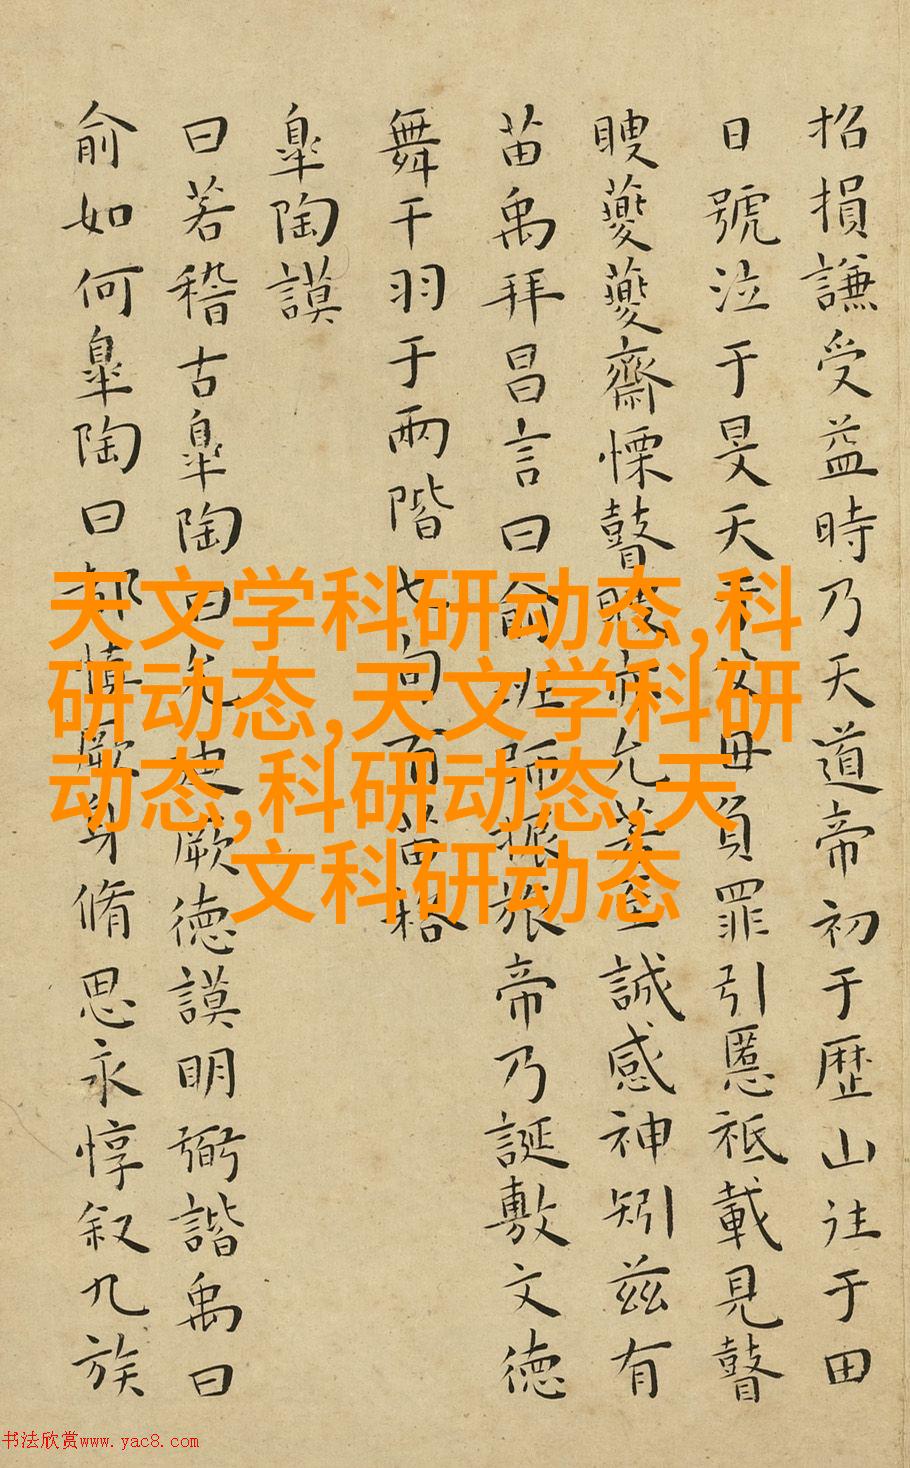 招損謙受益時乃天道帝初于歷山往于田
日號泣于旻天于父母負罪引慝祗載見瞽
瞍夔夔齋慄瞽瞍亦允若至誠感神矧兹有
苗禹拜昌言曰俞班師振旅帝乃誕敷文德
舞干羽于兩階七旬而苗格
臯陶謨
曰若稽古臯陶曰允迪厥德謨明弼諧禹曰
俞如何臯陶曰都慎厥身脩思永惇叙九族
天文学科研动态,科
研动态,天文学科研
动态,科研动态,天
文科研动态
书法欣赏www.yac8.com